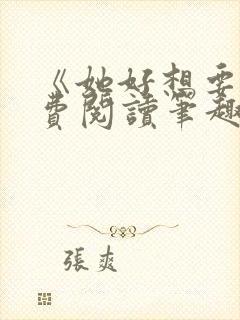 《她好想要
費閱讀筆趣
張爽